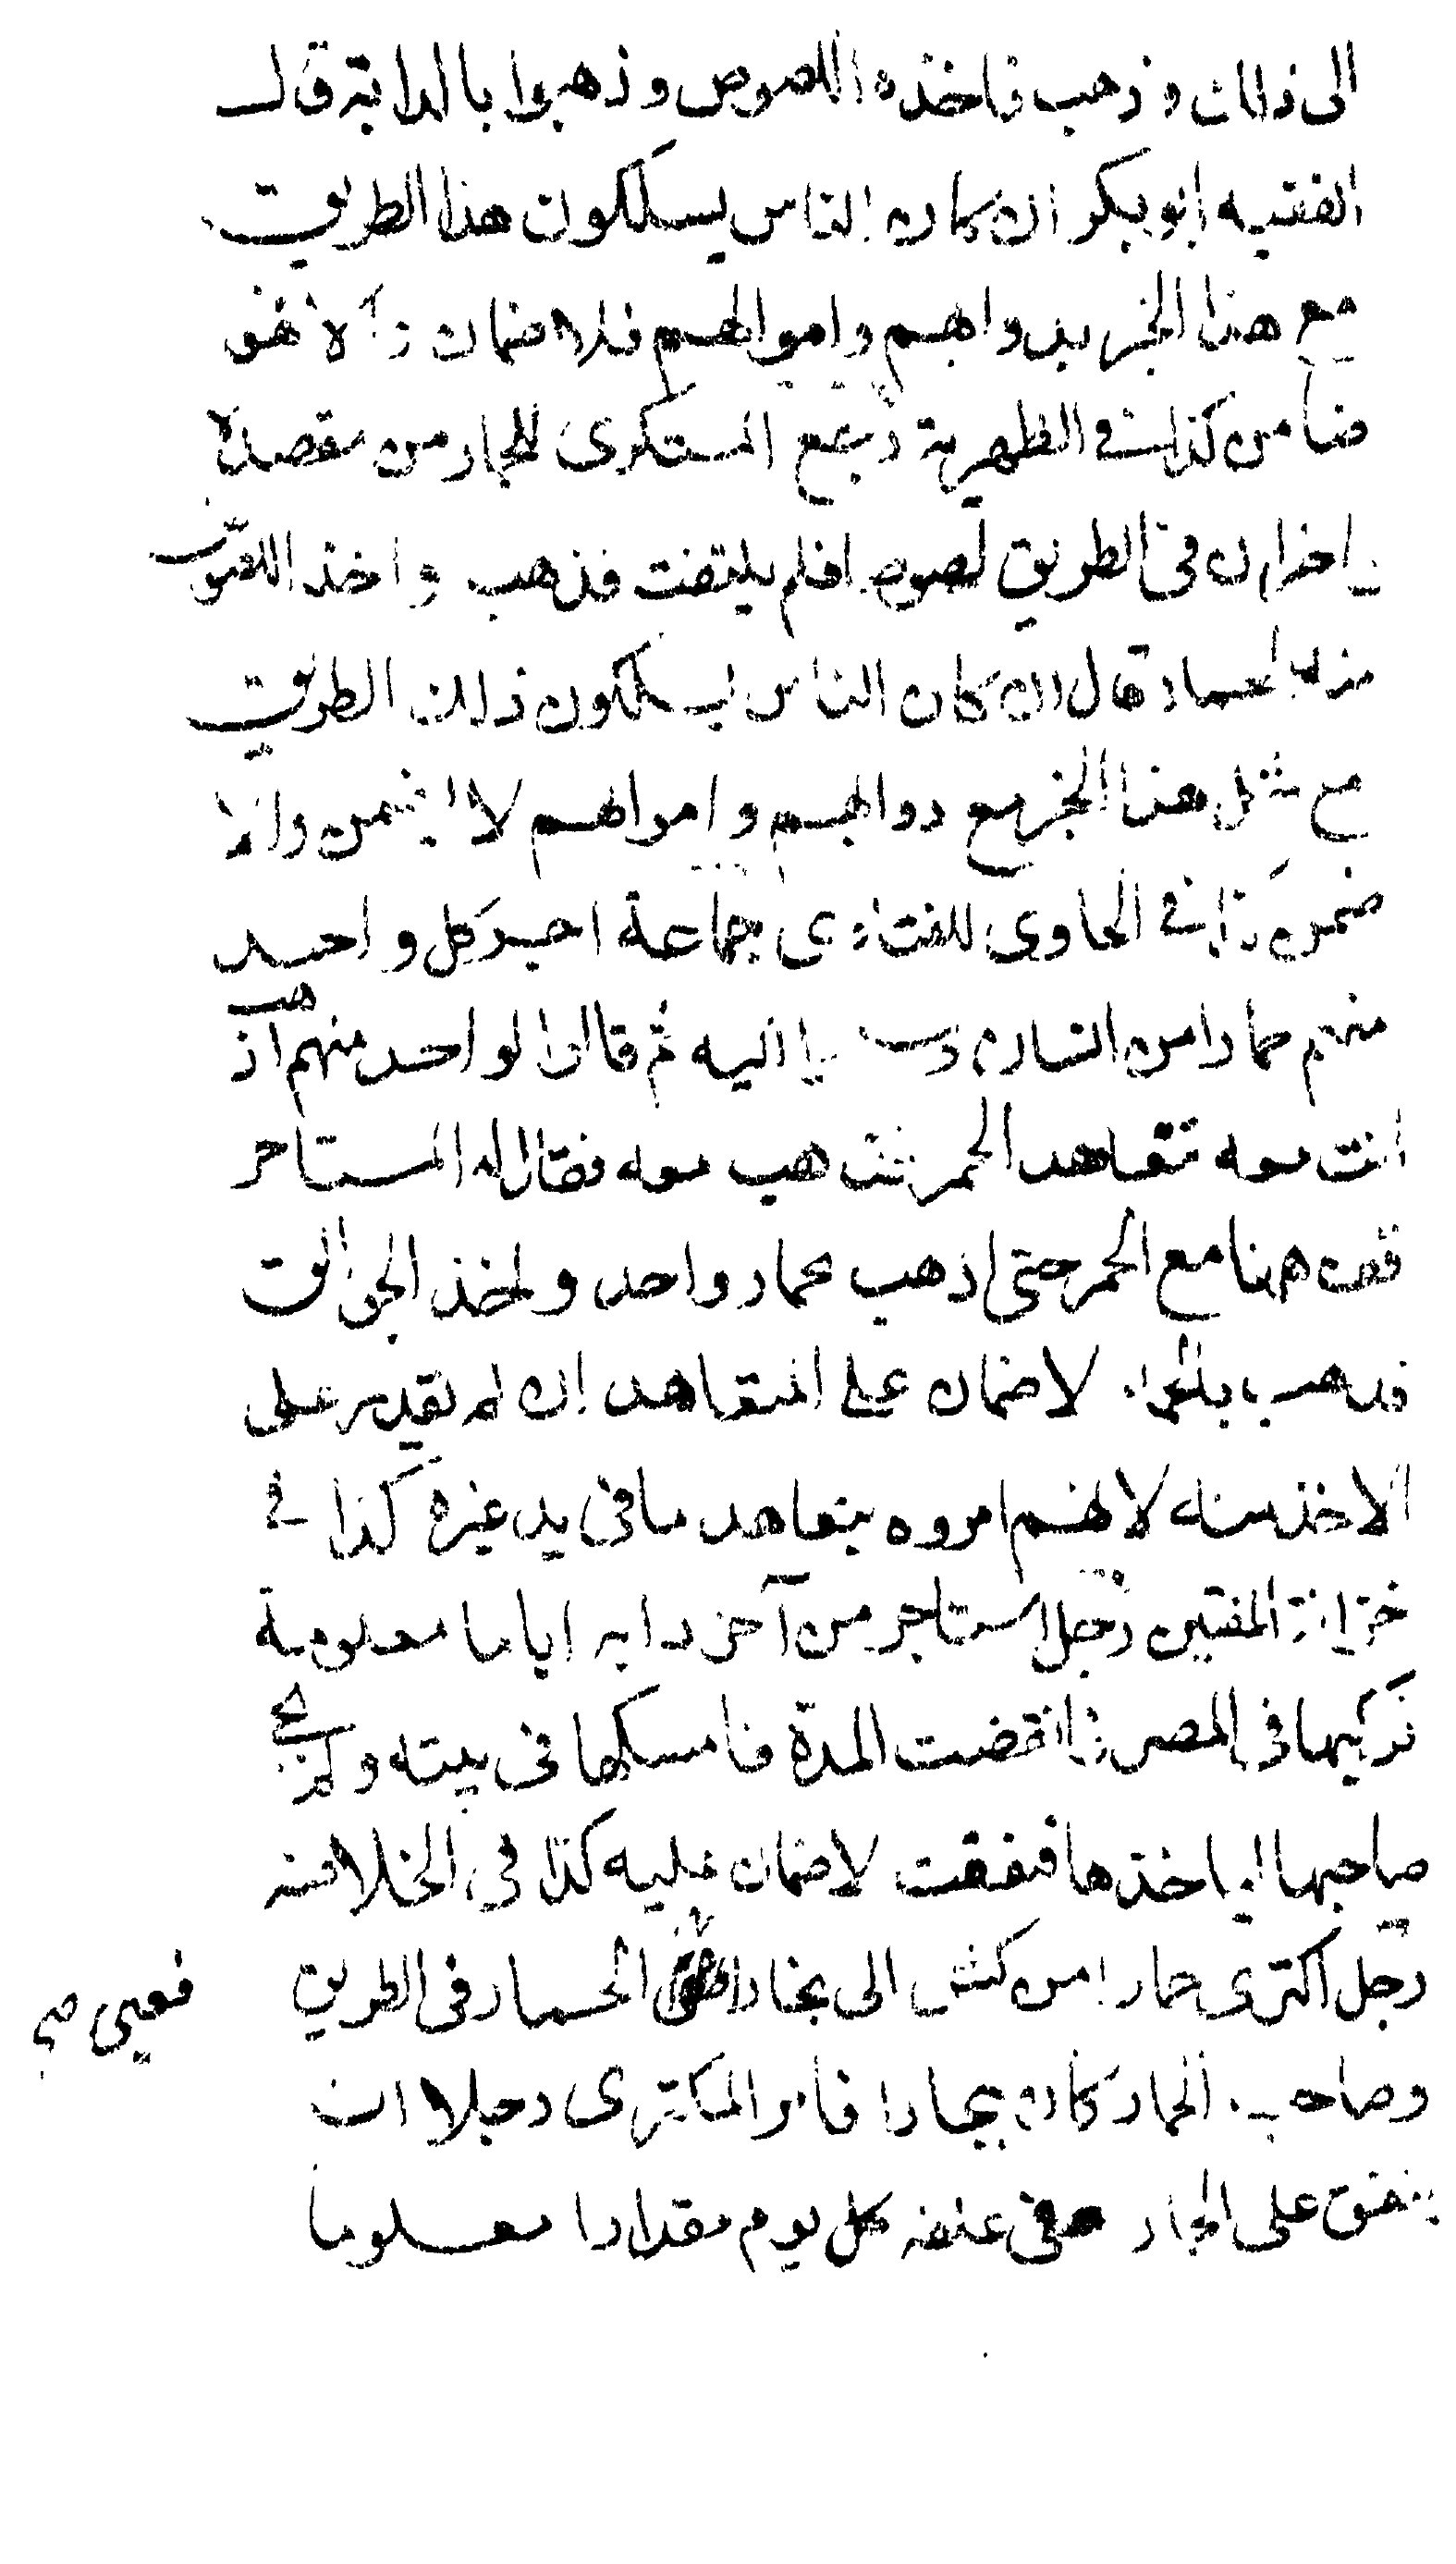 الى ذلك و ذهب فاخذه اللصوص و ذهبوا بالدابة قال
الفقيه ابو بكر ان كان الناس يسلكون هذا الطريق
مع هذا الخبر بدوابهم واموالهم فلا ضمان والا فهو
ضامن كذا في الظهيرية رجع المستكرى للحمار من مقصده
اخبر ان في الطريق لصوصا فلم يلتفت فذهب واخذ اللصوص
منه الحمار قال ان كان الناس يسلكون ذلك الطريق
مع مثل هذا الخبر مع دوابهم واموالهم لا يضمن والا
ضمن كذا في الحاوى للفتاوى جماعة اجر كل واحد
منهم حمارا من انسان وسلموا اليه ثم قالوا لواحد منهم اذهب
انت معه تتعاهد الحمر فذهب معه فقال له المستاجر
قف هنا مع الحمر حتى اذهب بحمار واحد واخذ الجوالق
فذهب بالحمار لا ضمان على المتعاهد ان لم يقدر على
الاخذ منه لانهم امروه بتعاهد ما فى يد غيره كذا في
خزانة المفتين رجل استاجر من آخر دابه اياما معلومة
يركبها فى المصر فانقضت المدة فامسكها فى بيته ولم يجئ
صاحبها لياخذها فنفقت لا ضمان عليه كذا في الخلاصة
رجل اكترى حمارا من كش الى بخارا الحمار فى الطريق
فعيى صح
وصاحب الحمار كان ببخارا فامر المكترى رجلا ان
ينفق على الحمار فى علفه كل يوم مقدارا معلوما